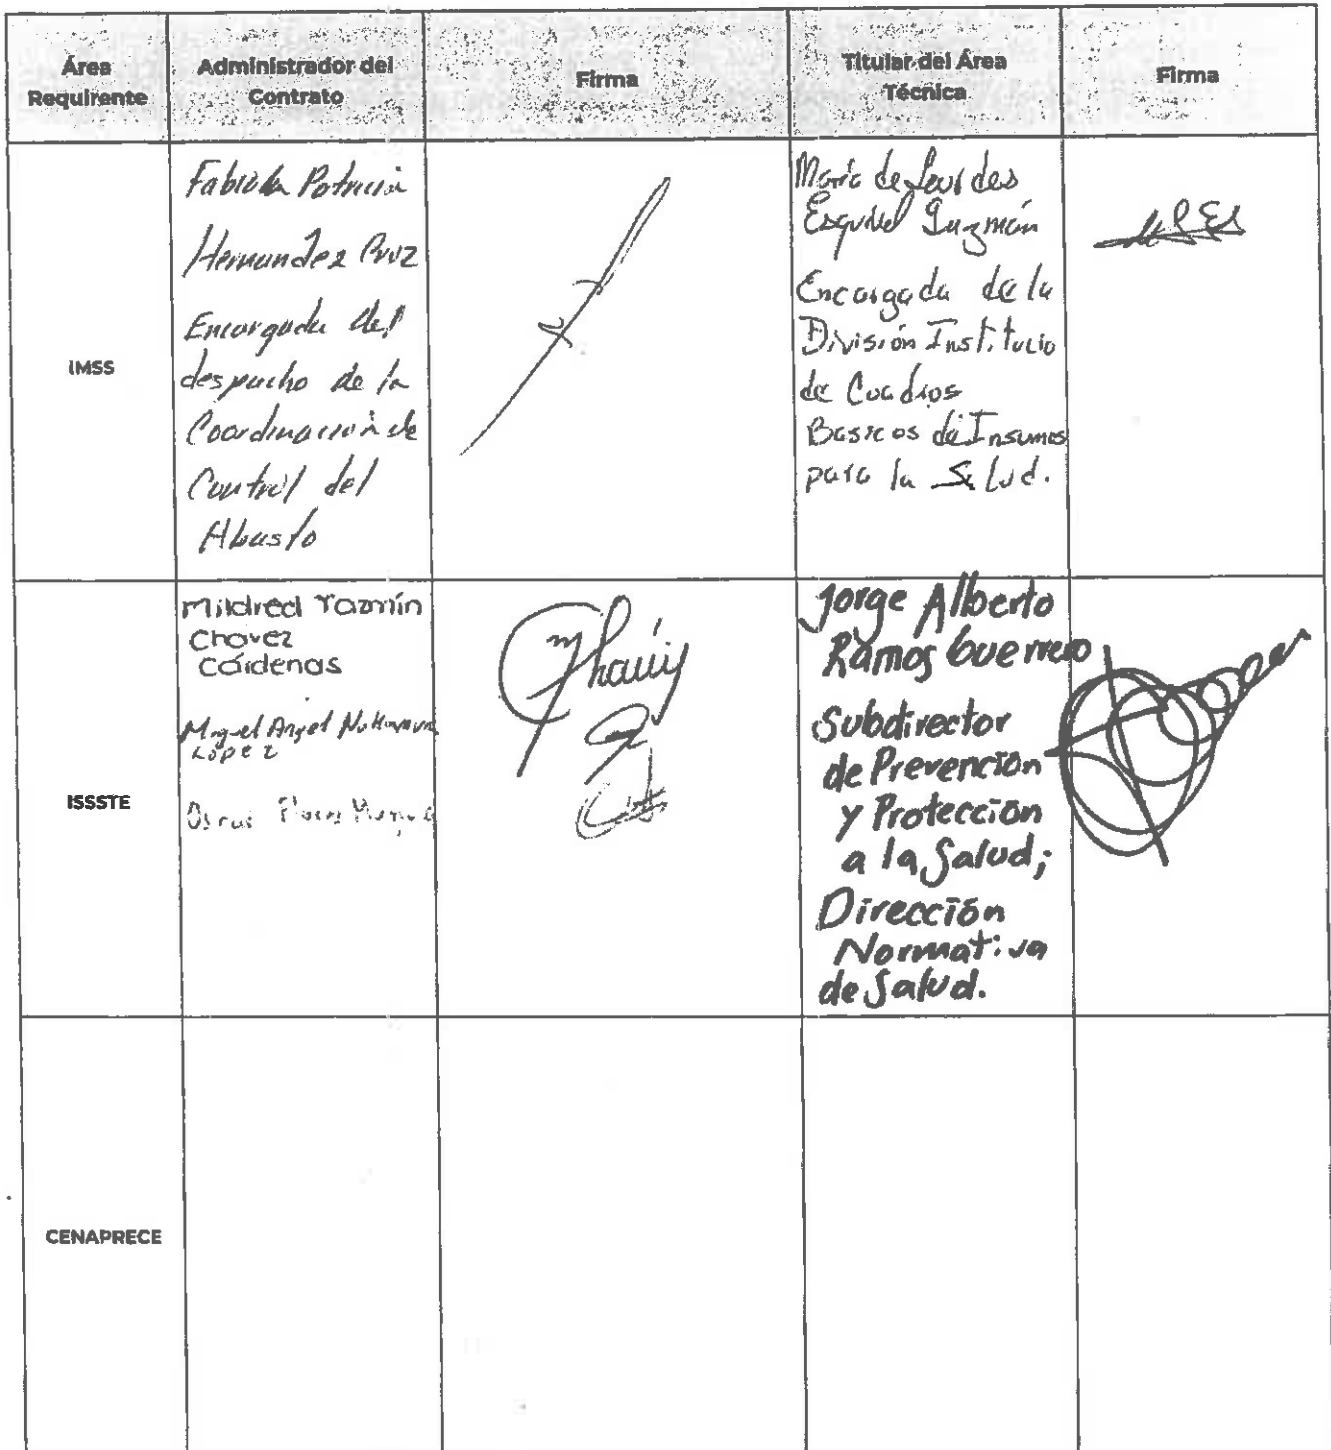 Área Requirente
Administrador del Contrato
Firma
Titular del Área Técnica
Firma
IMSS
Fabiola Patricia
Hernandez Cruz
Encargada del
despacho de la
Coordinación de
Control del
Abasto
María de Lourdes
Esquivel Guzmán
Encargada de la
División Institucio
de Cuadros
Basicos de Insumos
para la Salud.
ISSSTE
Mildred Yazmín
Chavez
Cárdenas
Miguel Angel
López
Oscar Flores
Jorge Alberto
Ramos Guerrero
Subdirector
de Prevención
y Protección
a la Salud;
Dirección
Normativa
de Salud.
CENAPRECE